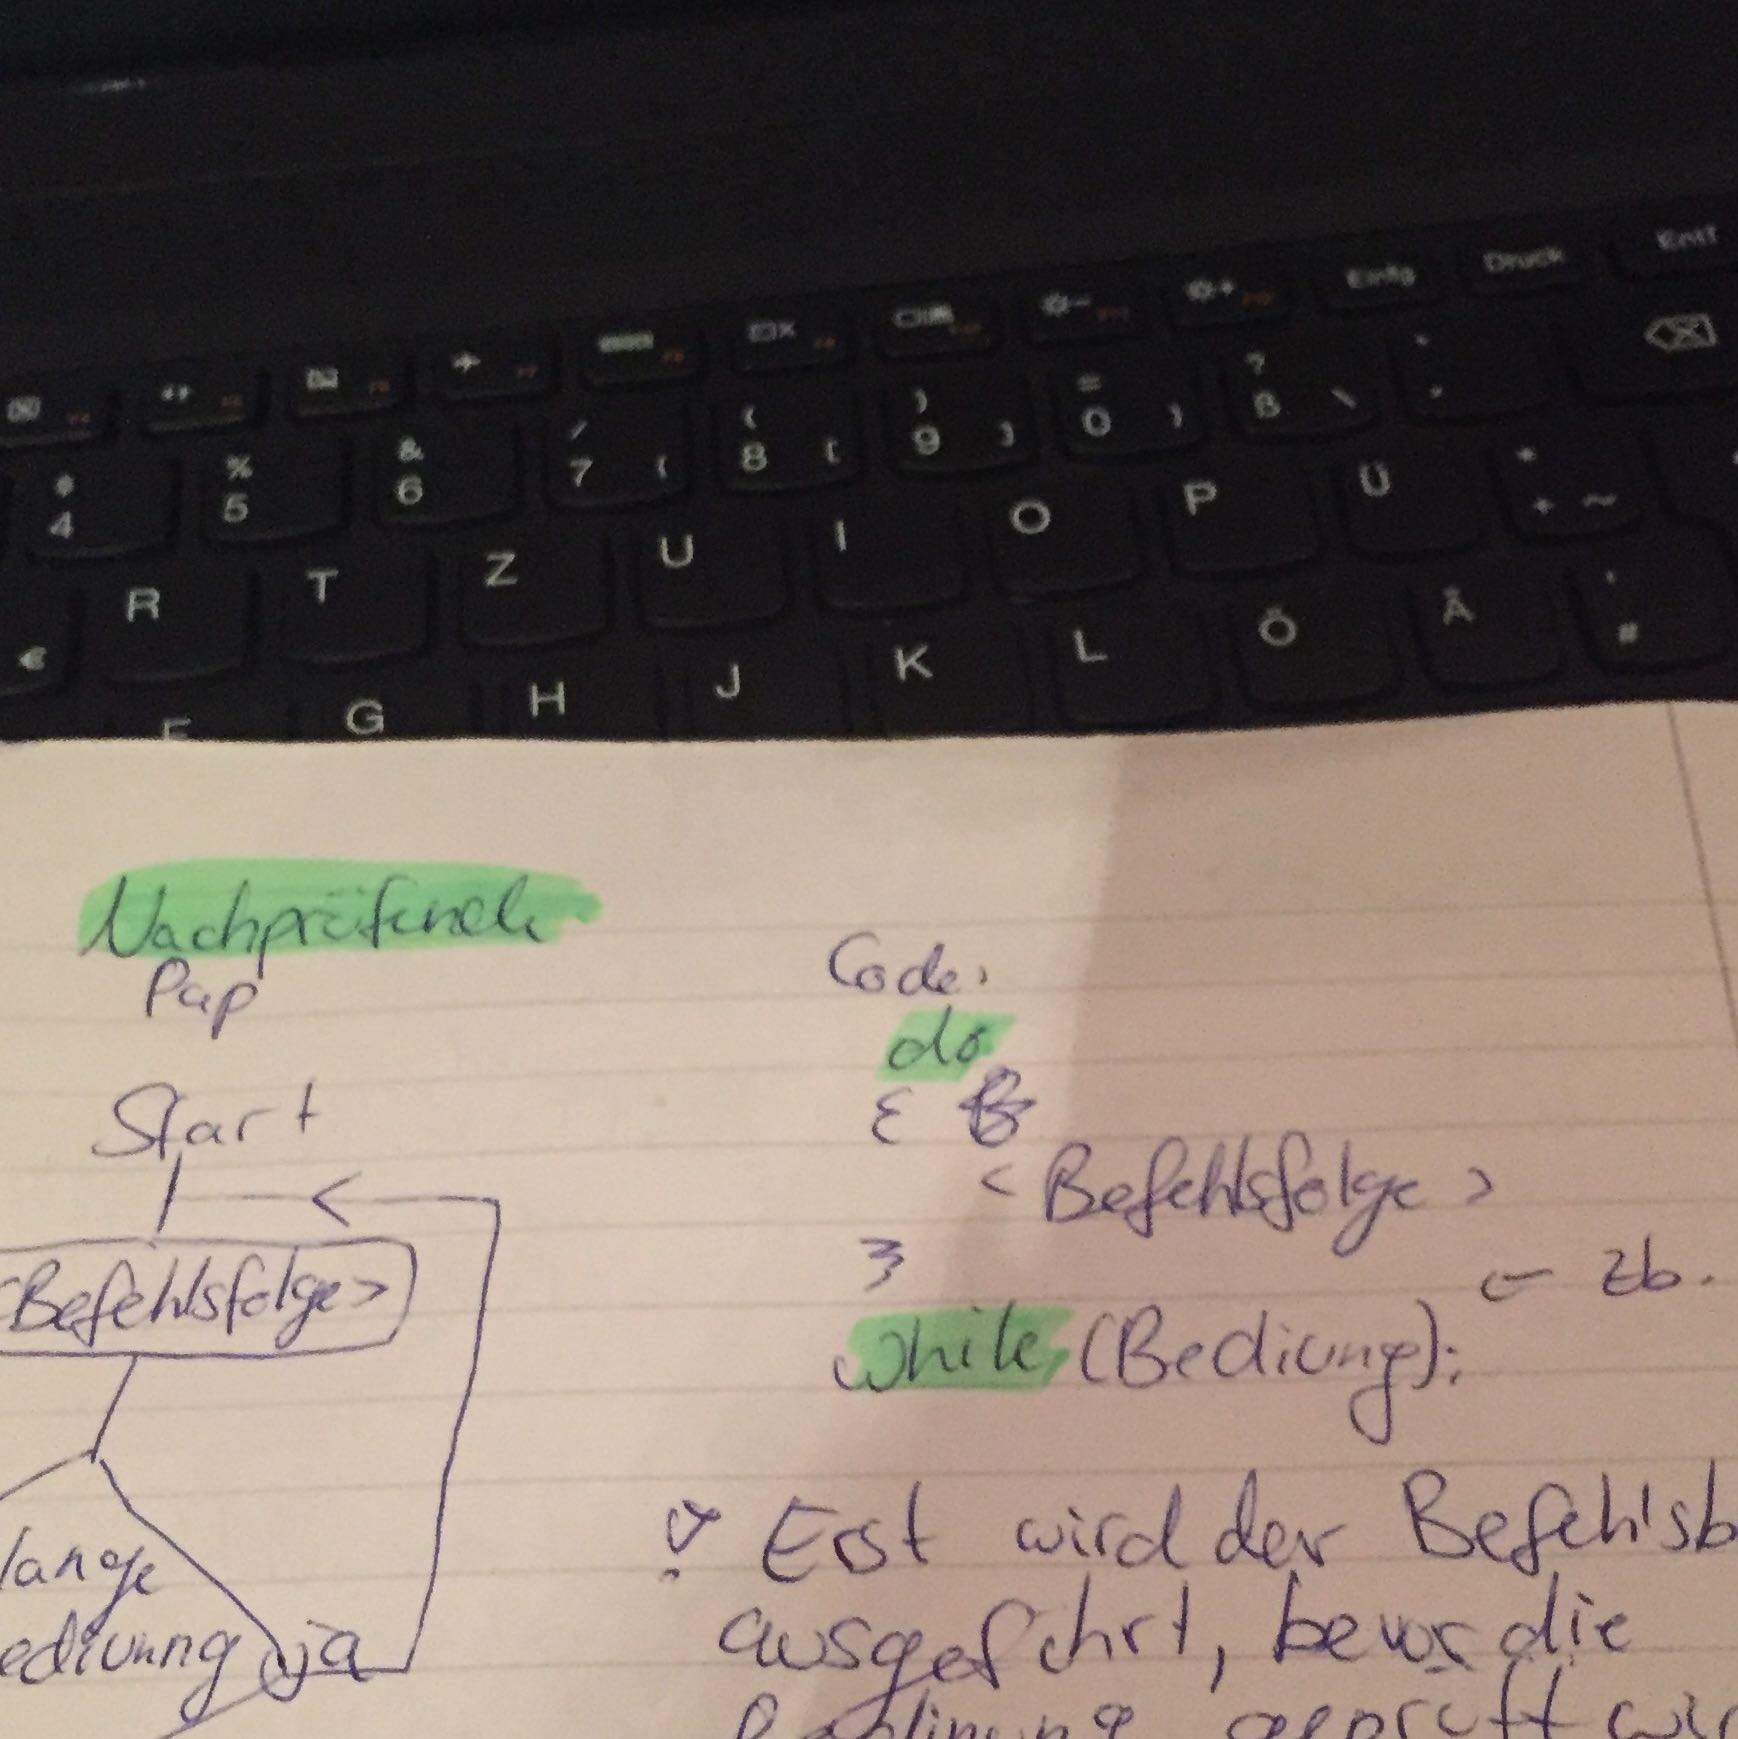 Einfg Druck Entf
$ 4 % 5 & 6 / 7 { ( 8 [ ) 9 ] = 0 } ? ß \
€ R T Z U I O P Ü * + ~
F G H J K L Ö Ä ' #
Nachprüfende
Pap
Code:
do
Start
{
<Befehlsfolge>
}
<Befehlsfolge>
← zb.
while (Bediung);
! Erst wird der Befehlsb
lange
ausgeführt, bevor die
ediunng ja
geprüft wir